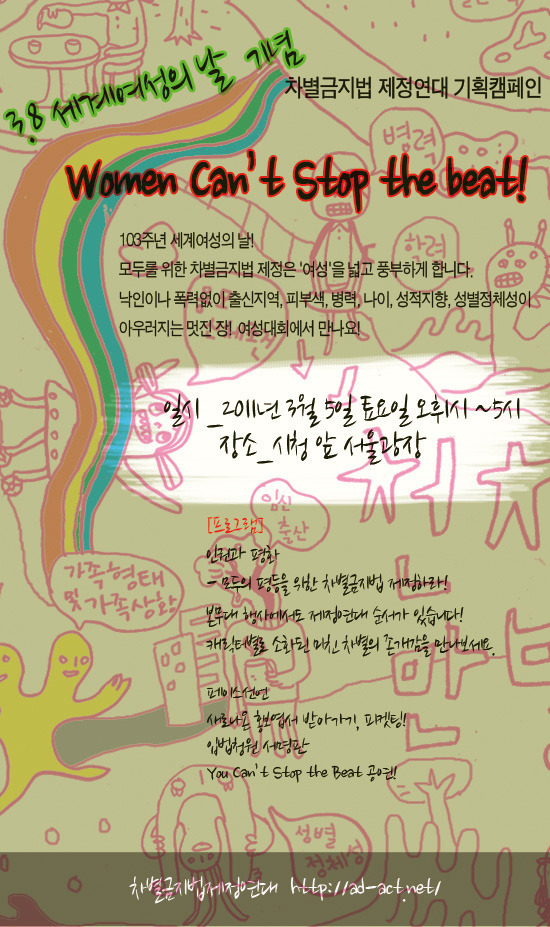 3.8 세계여성의 날 기념
차별금지법 제정연대 기획캠페인
병력
Women Can't Stop the beat!
103주년 세계여성의 날!
학력
모두를 위한 차별금지법 제정은 '여성'을 넓고 풍부하게 합니다.
낙인이나 폭력없이 출신지역, 피부색, 병력, 나이, 성적지향, 성별정체성이
아우러지는 멋진 장! 여성대회에서 만나요!
일시 _2011년 3월 5일 토요일 오휘시 ~5시
장소_시청 앞 서울광장
임신
출산
[프로그램]
인권과 평화
- 모두의 평등을 위한 차별금지법 제정하라!
가족형태
및 가족상황
본무대 행사에서도 제정연대 순서가 있습니다!
캐릭터별로 소화된 미친 차별의 존재감을 만나보세요.
페이스선언
새로나온 홍보엽서 받아가기, 피켓팅!
입법청원 서명판
You Can't Stop the Beat 공연!
성별
정체성
차별금지법제정연대 http://ad-act.net/